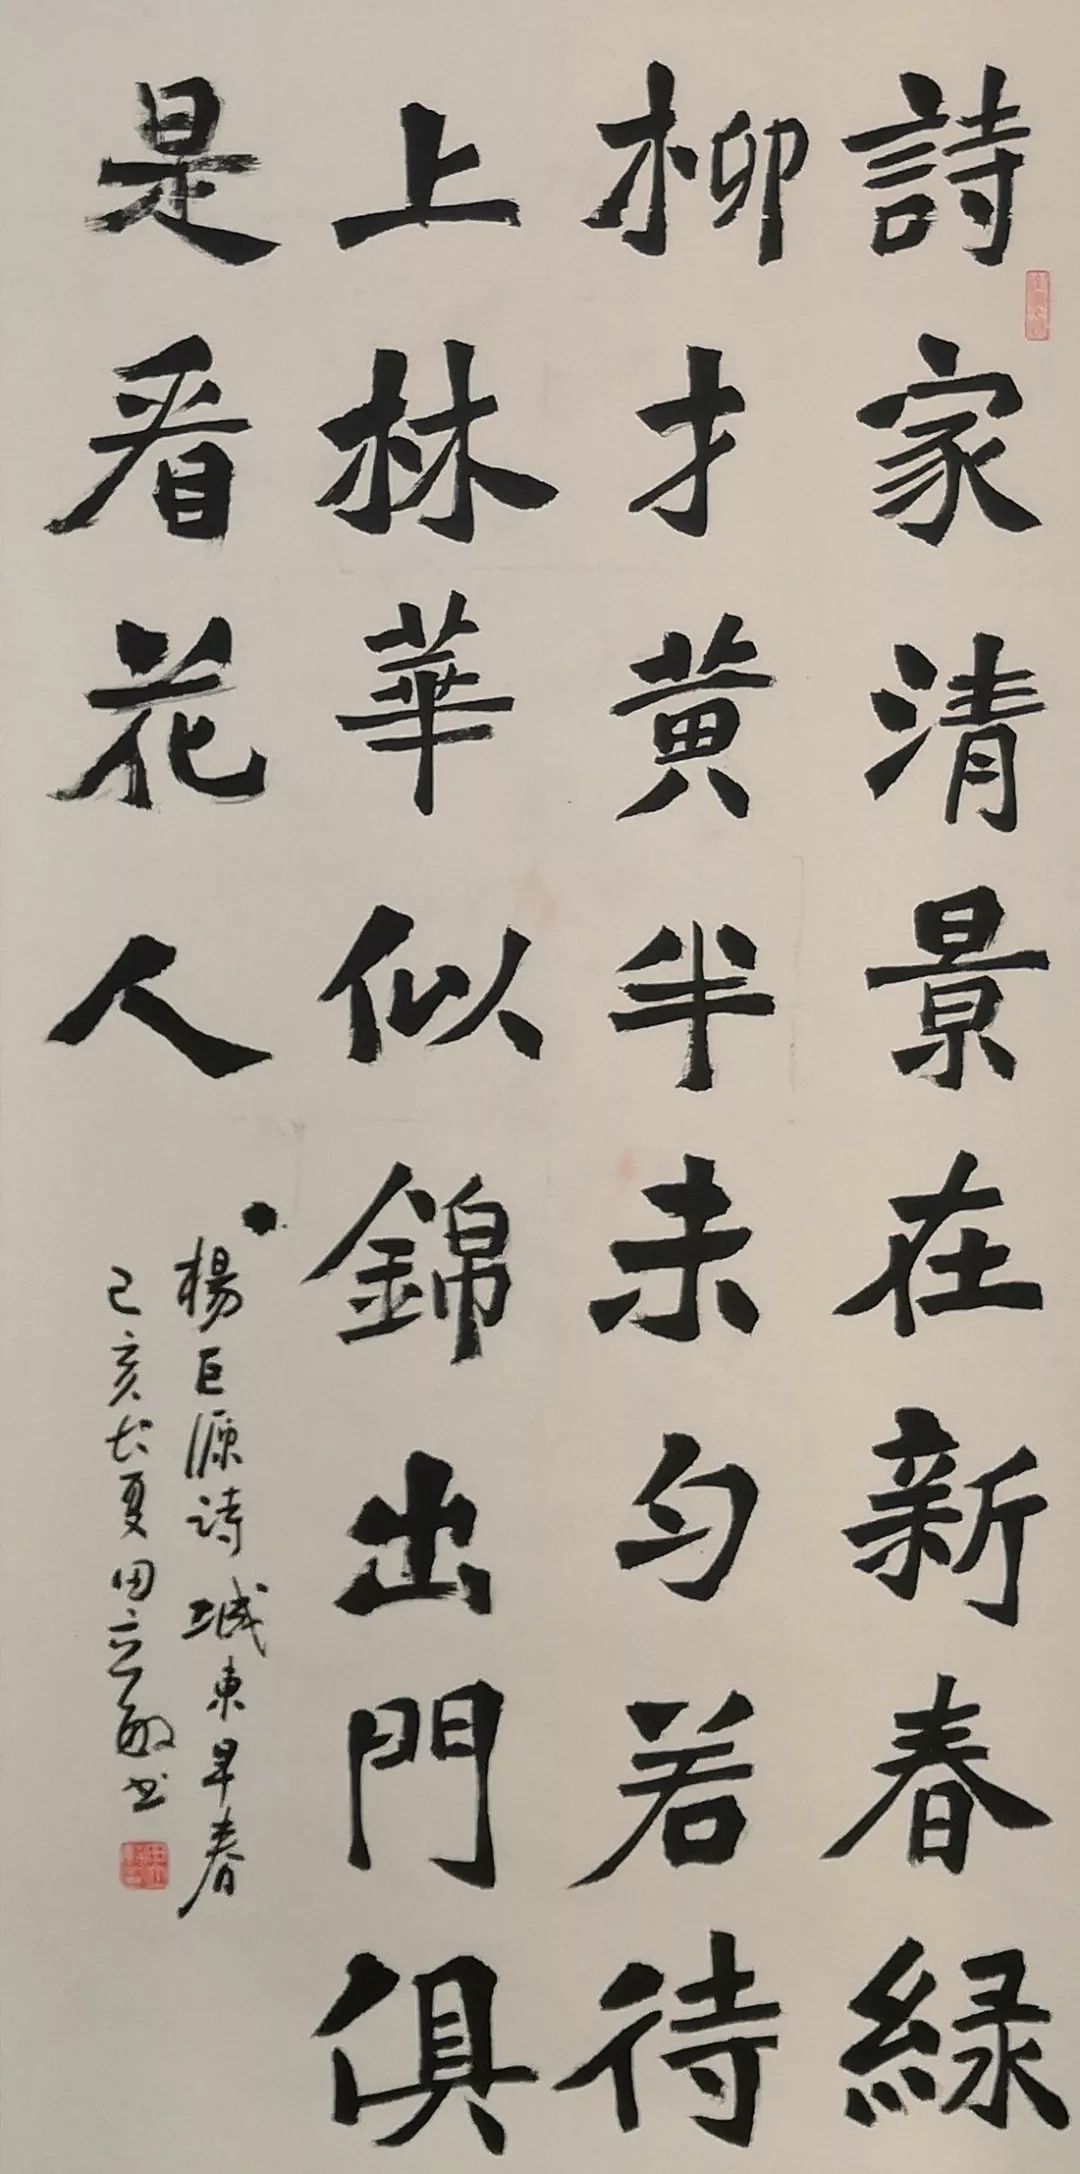 詩家清景在新春緑
柳才黄半未匀若待
上林華似錦出門俱
是看花人
楊巨源詩城東早春
己亥大夏田立敏书